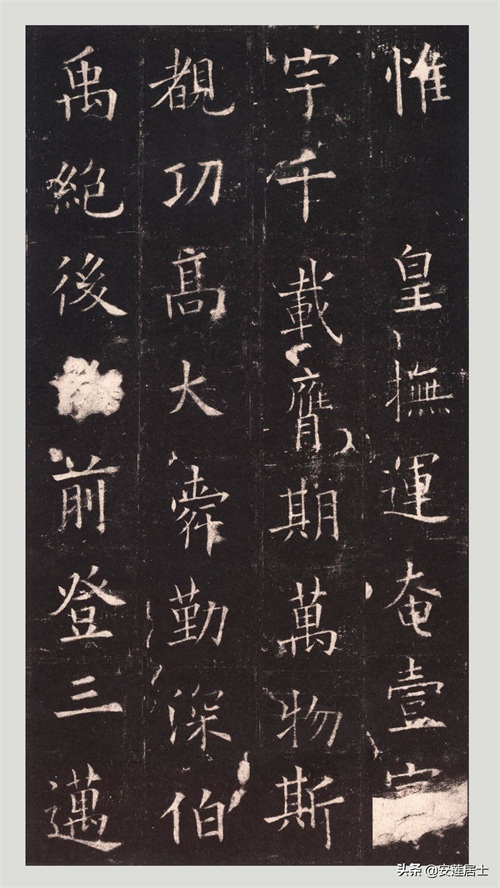 惟 皇撫運奄壹
宇千載膺期萬物斯
覩功髙大舜勤深伯
禹絕後前登三邁
头条 @安莲居士